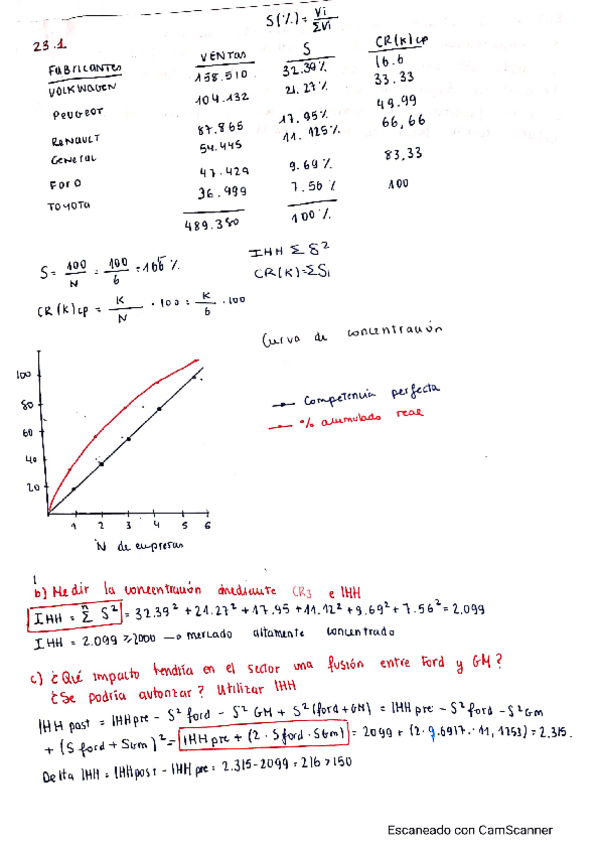 S(%) = Vi / ΣVi
23.1
FABRICANTES VENTAS S CR(K)cp
VOLKWAGEN 158.510 32.39% 16.6
PEUGEOT 104.132 21.27% 33.33
RENAULT 87.865 17.95% 49.99
General 54.445 11.125% 66,66
FORD 47.429 9.69% 83,33
TOYOTA 36.999 7.56% 100
489.380 100%
S = 100/N = 100/6 = 166%
IHH Σ S²
CR(K)=ΣSi
CR(K)cp = K/N · 100 = K/6 · 100
Curva de concentración
100
80
60
40
20
1 2 3 4 5 6
N de empresas
Competencia perfecta
% acumulado real
b) Medir la concentración mediante CR3 e IHH
IHH = Σ S² = 32.39² + 21.27² + 17.95 + 11.12² + 9.69² + 7.56² = 2.099
IHH = 2.099 ≥ 2000 → mercado altamente concentrado
c) ¿Qué impacto tendría en el sector una fusión entre Ford y GM?
¿Se podría autorizar? Utilizar IHH
IHH post = IHH pre - S² ford - S² GM + S² (ford+GM) = IHH pre - S² ford - S² GM
+ (S ford + S GM)² = IHH pre + (2 · S ford · S GM) = 2099 + (2 · 9.6917 · 11,1253) = 2.315.
Delta IHH = IHH post - IHH pre = 2.315 - 2099 = 216 > 150
Escaneado con CamScanner